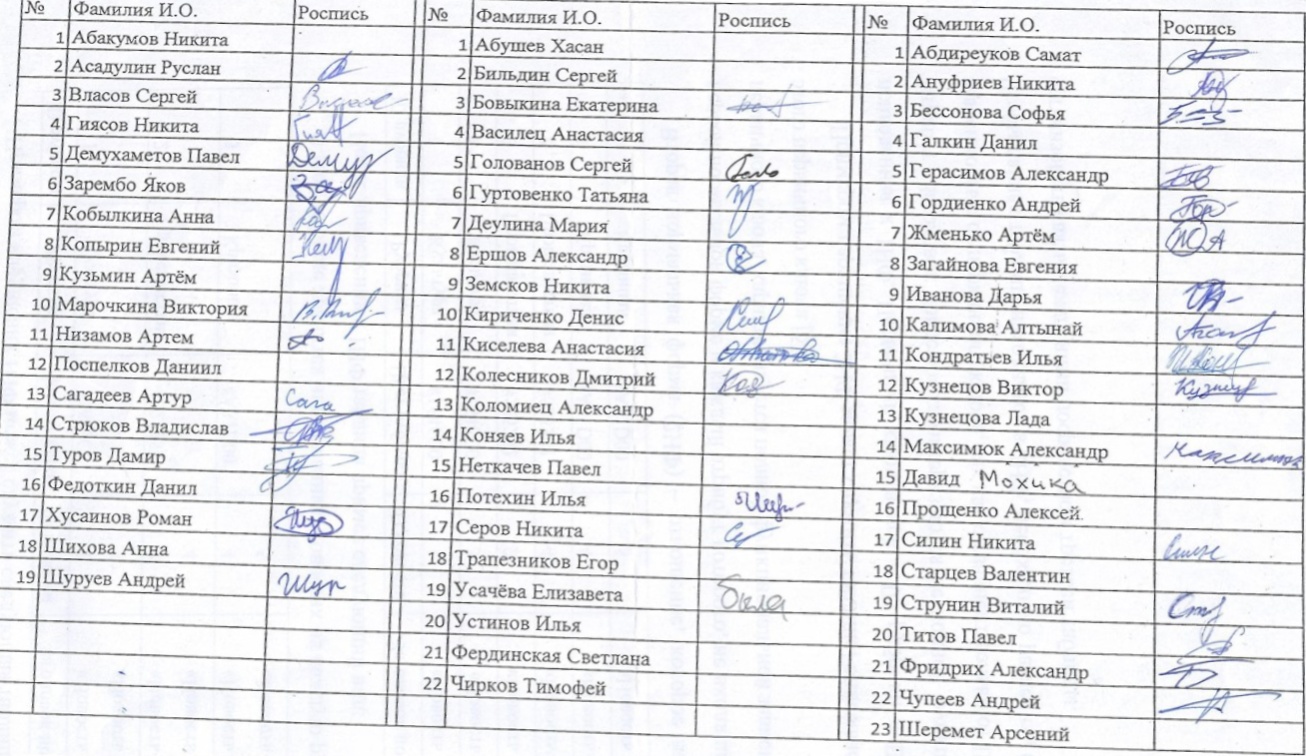 № Фамилия И.О. Роспись
1 Абакумов Никита
2 Асадулин Руслан
3 Власов Сергей
4 Гиясов Никита
5 Демухаметов Павел Демух
6 Зарембо Яков
7 Кобылкина Анна
8 Копырин Евгений
9 Кузьмин Артём
10 Марочкина Виктория
11 Низамов Артем
12 Поспелков Даниил
13 Сагадеев Артур Сага
14 Стрюков Владислав
15 Туров Дамир
16 Федоткин Данил
17 Хусаинов Роман
18 Шихова Анна
19 Шуруев Андрей Шур
№ Фамилия И.О. Роспись
1 Абушев Хасан
2 Бильдин Сергей
3 Бовыкина Екатерина
4 Василец Анастасия
5 Голованов Сергей Голо
6 Гуртовенко Татьяна
7 Деулина Мария
8 Ершов Александр
9 Земсков Никита
10 Кириченко Денис
11 Киселева Анастасия
12 Колесников Дмитрий
13 Коломиец Александр
14 Коняев Илья
15 Неткачев Павел
16 Потехин Илья
17 Серов Никита
18 Трапезников Егор
19 Усачёва Елизавета
20 Устинов Илья
21 Фердинская Светлана
22 Чирков Тимофей
№ Фамилия И.О. Роспись
1 Абдиреуков Самат
2 Ануфриев Никита
3 Бессонова Софья
4 Галкин Данил
5 Герасимов Александр
6 Гордиенко Андрей
7 Жменько Артём
8 Загайнова Евгения
9 Иванова Дарья
10 Калимова Алтынай
11 Кондратьев Илья
12 Кузнецов Виктор
13 Кузнецова Лада
14 Максимюк Александр
15 Давид Мохика
16 Прощенко Алексей
17 Силин Никита
18 Старцев Валентин
19 Струнин Виталий
20 Титов Павел
21 Фридрих Александр
22 Чупеев Андрей
23 Шеремет Арсений